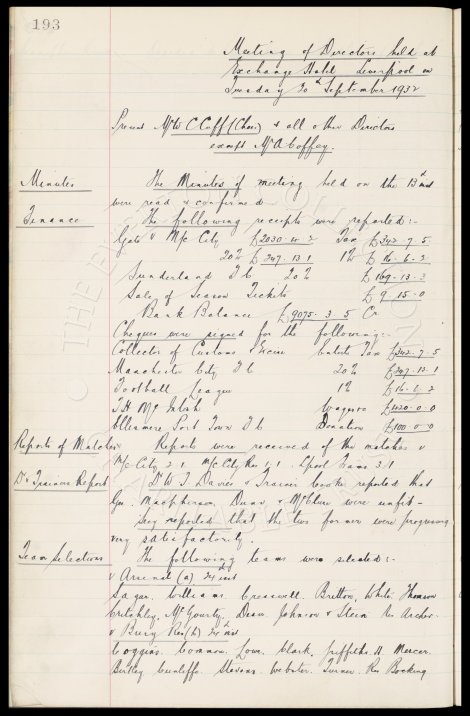 193
Meeting of Directors held at
Exchange Hotel Liverpool on
Tuesday 20th September 1932
Present. Mr W C Cuff (Chair) & all other Directors
except Mr A Coffey.
Minutes The Minutes of meeting held on the 13th inst
were read & confirmed
Finance The following receipts were reported:-
Gate v M/c City £2030.4.2 Tax £342.7.5
20% £347.13.1 1% £16.6.2
Sunderland F C 20% £169.13.3
Sale of Season Tickets £9.15.0
Bank Balance £9075.3.5 Cr
Cheques were signed for the following:-
Collector of Customs & Excise Entertn Tax £342.7.5
Manchester City F C 20% £347.13.1
Football League 1% £16.6.2
T.H. McIntosh Wages &c £420.0.0
Ellesmere Port Town F C Donation £100.0.0
Reports of Matches Reports were received of the matches v
M/c City 2.1 M/c City Res 1.1 Lpool Cams 3.1
Dr & Trainers Report Dr W.J. Davies & Trainer Cooke reported that
Gee. Macpherson Dunn & McClure were unfit -
they reported that the two former were progressing
very satisfactorily.
Team Selections The following teams were selected:-
v Arsenal (a) 24th inst
Sagar. Williams. Cresswell. Britton. White. Thomson
Critchley. McGourty. Dean. Johnson & Stein. Res Archer.
v Bury Res (h) 24th inst
Coggins. Common. Lowe. Clark. Griffiths. H. Mercer.
Birtley Cunliffe. Stevens. Webster. Turner. Res Bocking